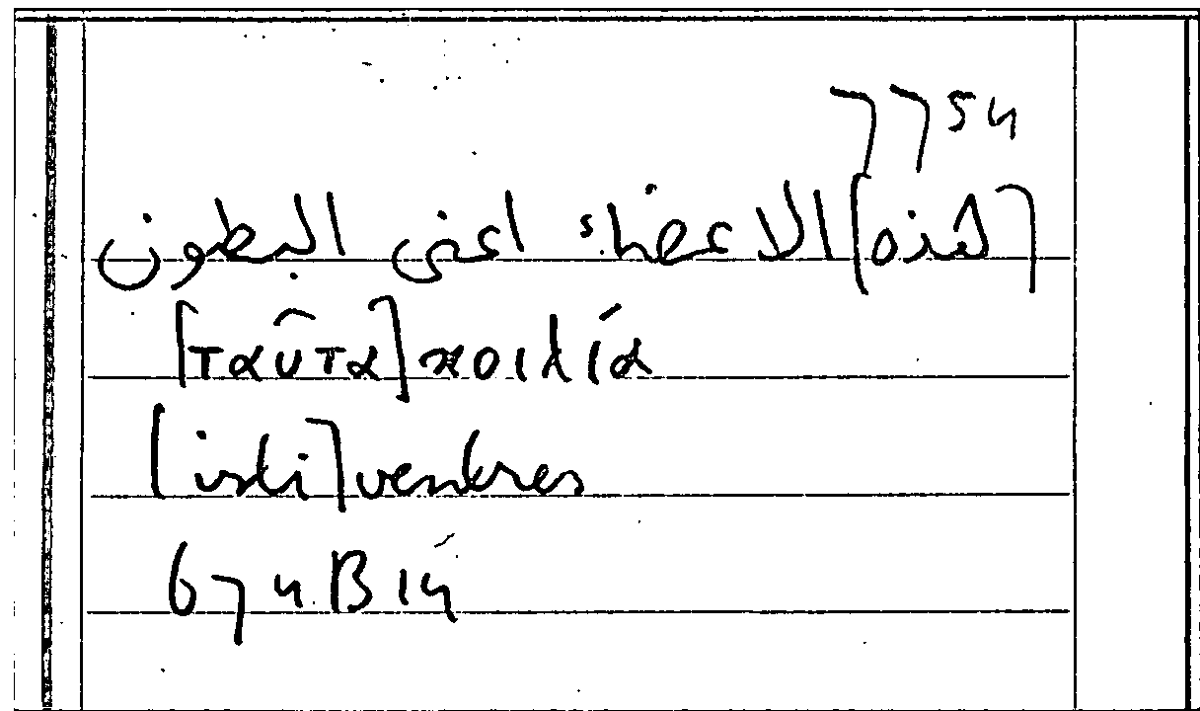 7754
[هذه] الاعضاء اعنى البطون
[ταῦτα] κοιλία
[isti] ventres
674 B 14